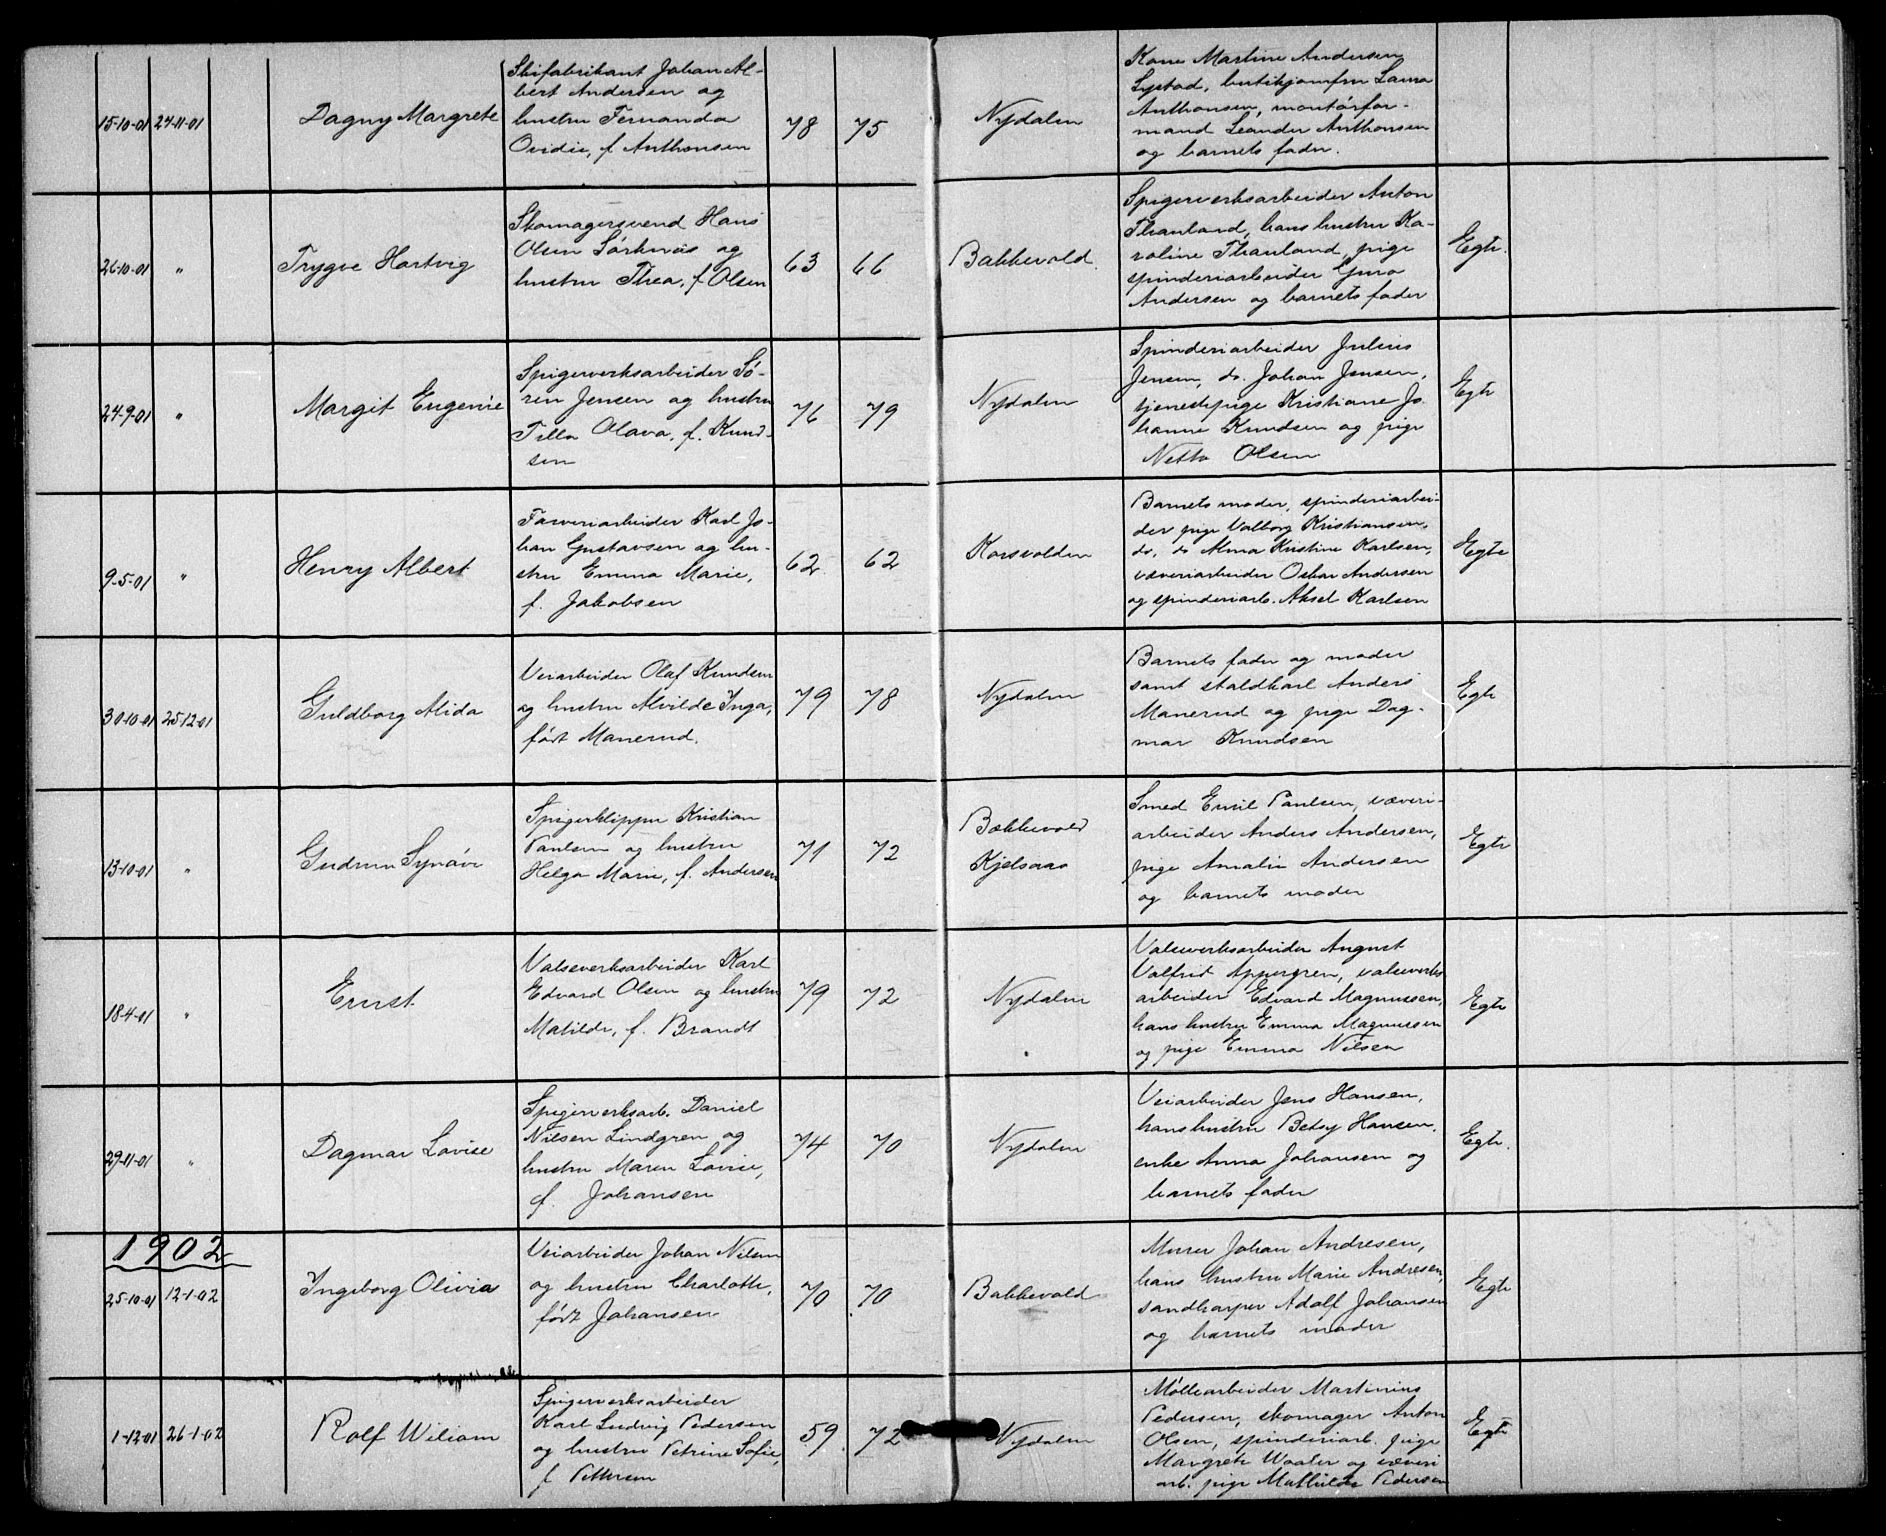 15-10-01 24-11-01
Dagny Margrete
Skifabrikant Johan Al-
bert Andersen og
hustru Fernanda
Ovidie, f Anthonsen
78 75
Nydalen
Kone Martine Andersen
Lystad, butikjomfru Laura
Anthonsen, montørfor-
mand Leander Anthonsen
og barnets fader.
26-10-01 "
Trygve Hartvig
Skomagersvend Hans
Olsen Sørknæs og
hustru Thea, f Olsen
63 66
Bakkevold.
Spigerverksarbeider Anton
Thanland, hans hustru Ka-
roline Thanland, pige
spinderiarbeider Gina
Andersen og barnets fader
Egte.
24-9-01 "
Margit Eugenie
Spigerverksarbeider Sø-
ren Jensen og hustru
Tilla Olava, f. Knud-
sen
76 79
Nydalen
Spinderiarbeider Julius
Jensen, do. Johan Jensen,
tjenestepige Kristiane Jo
hanne Knudsen og pige
Netta Olsen
Egte
9-5-01 "
Henry Albert
Farveriarbeider Karl Jo-
han Gustavsen og hu-
stru Emma Marie,
f. Jakobsen
62 62
Korsvolden
Barnets moder, spinderiarbei-
der pige Valborg Kristiansen,
do. do Alma Kristine Karlsen,
væveriarbeider Oskar Andersen
og spinderiarb. Aksel Karlsen
Egte
30-10-01 25-12-01
Guldborg Alida
Veiarbeider Olaf Knudsen
og hustru Alvilde Inga,
født Manerud.
79 78
Nydalen
Barnets fader og moder
samt staldkarl Anders
Manerud og pige Dag-
mar Knudsen
Egte
13-10-01 "
Gudrun Synøve
Spigerklipper Kristian
Paulsen og hustru
Helga Marie, f. Andersen
71 72
Bakkevold
Kjelsaas
Smed Emil Paulsen, væveri-
arbeider Anders Andersen,
pige Amalie Andersen
og barnets moder
Egte
18-4-01 "
Ernst
Valseverksarbeider Karl
Edvard Olsen og hustru
Matilde, f. Brandt
79 72
Nydalen
Valseverksarbeider August
Valfrid Appergren, valseverks
arbeider Edvard Magnussen,
hans hustru Emma Magnussen
og pige Emma Nilsen
Egte
29-11-01 "
Dagmar Lovise
Spigerverksarb. Daniel
Nilsen Lindgren og
hustru Maren Lovise,
f. Johansen
74 70
Nydalen
Veiarbeider Jens Hansen,
hans hustru Betsy Hansen,
enke Anna Johansen og
barnets fader
Egte.
1902
25-10-01 12-1-02
Ingeborg Olivia
Veiarbeider Johan Nilsen
og hustru Charlotte,
født Johansen
70 70
Bakkevold
Murer Johan Andresen,
hans hustru Marie Andresen,
sandharper Adolf Johansen
og barnets moder
Egte
1-12-01 26-1-02
Rolf Wiliam
Spigerverksarbeider
Karl Ludvig Pedersen
og hustru Petrine Sofie,
f Pettersen
59 72
Nydalen
Møllearbeider Martinius
Pedersen, skomager Anton
Olsen, spinderiarb. pige
Margrete Waaler og væveri
arb. pige Mathilde Pedersen
Egte